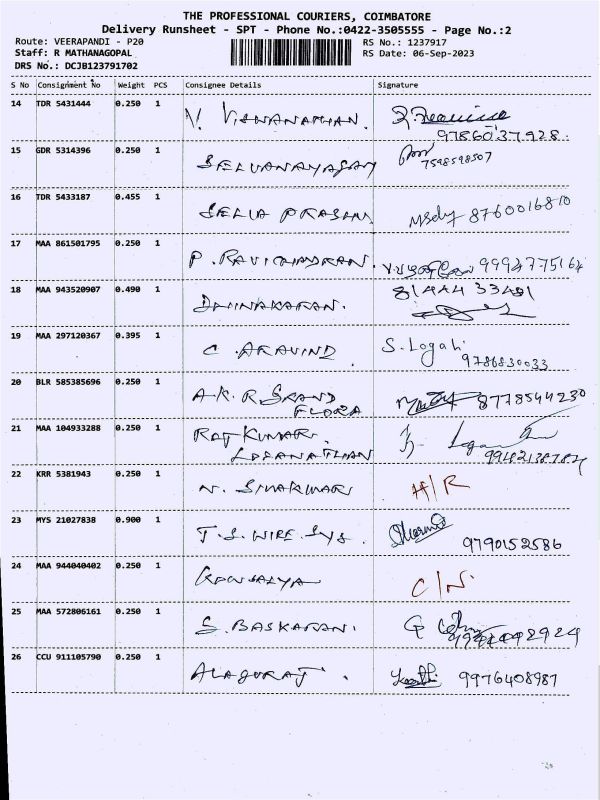 THE PROFESSIONAL COURIERS, COIMBATORE
Delivery Runsheet - SPT - Phone No.:0422-3505555 - Page No.:2
Route: VEERAPANDI - P20 RS No.: 1237917
Staff: R MATHANAGOPAL RS Date: 06-Sep-2023
DRS No.: DCJB123791702
S No Consignment No Weight PCS Consignee Details Signature
14 TDR 5431444 0.250 1 V. VISWANATHAN.
97860 37928.
15 GDR 5314396 0.250 1 SELVANAYAGAM
7598598507
16 TDR 5433187 0.455 1 SELVA PRASANN 8760016810
17 MAA 861501795 0.250 1 P. RAVICHANDRAN.
18 MAA 943520907 0.490 1 DHINAKARAN.
19 MAA 297120367 0.395 1 C. ARAVIND S. Logah
9786830033
20 BLR 585385696 0.250 1 A.K.R GRAND 8778544230
FLORA
21 MAA 104933288 0.250 1 RAJKUMAR.
LOGANATHAN
22 KRR 5381943 0.250 1 N. SIVAKUMAR H/R
23 MYS 21027838 0.900 1 T.S. WIRE. SYS.
9790152586
24 MAA 944040402 0.250 1 KOWSALYA C/N.
25 MAA 572806161 0.250 1 S. BASKARAN.
26 CCU 911105790 0.250 1 ALAGURAJ. 9976408987